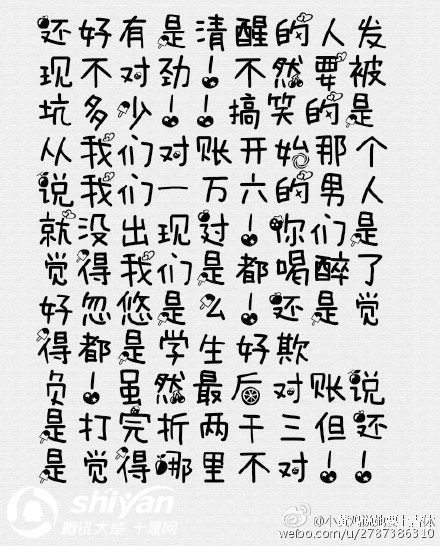 还好有是清醒的人发
现不对劲！不然要被
坑多少！！搞笑的是
从我们对账开始那个
说我们一万六的男人
就没出现过！你们是
觉得我们是都喝醉了
好忽悠是么！还是觉
得都是学生好欺
负！虽然最后对账说
是打完折两千三但还
是觉得哪里不对！！
shiyan
腾讯大楚 十堰网
weibo.com/u/2787386310